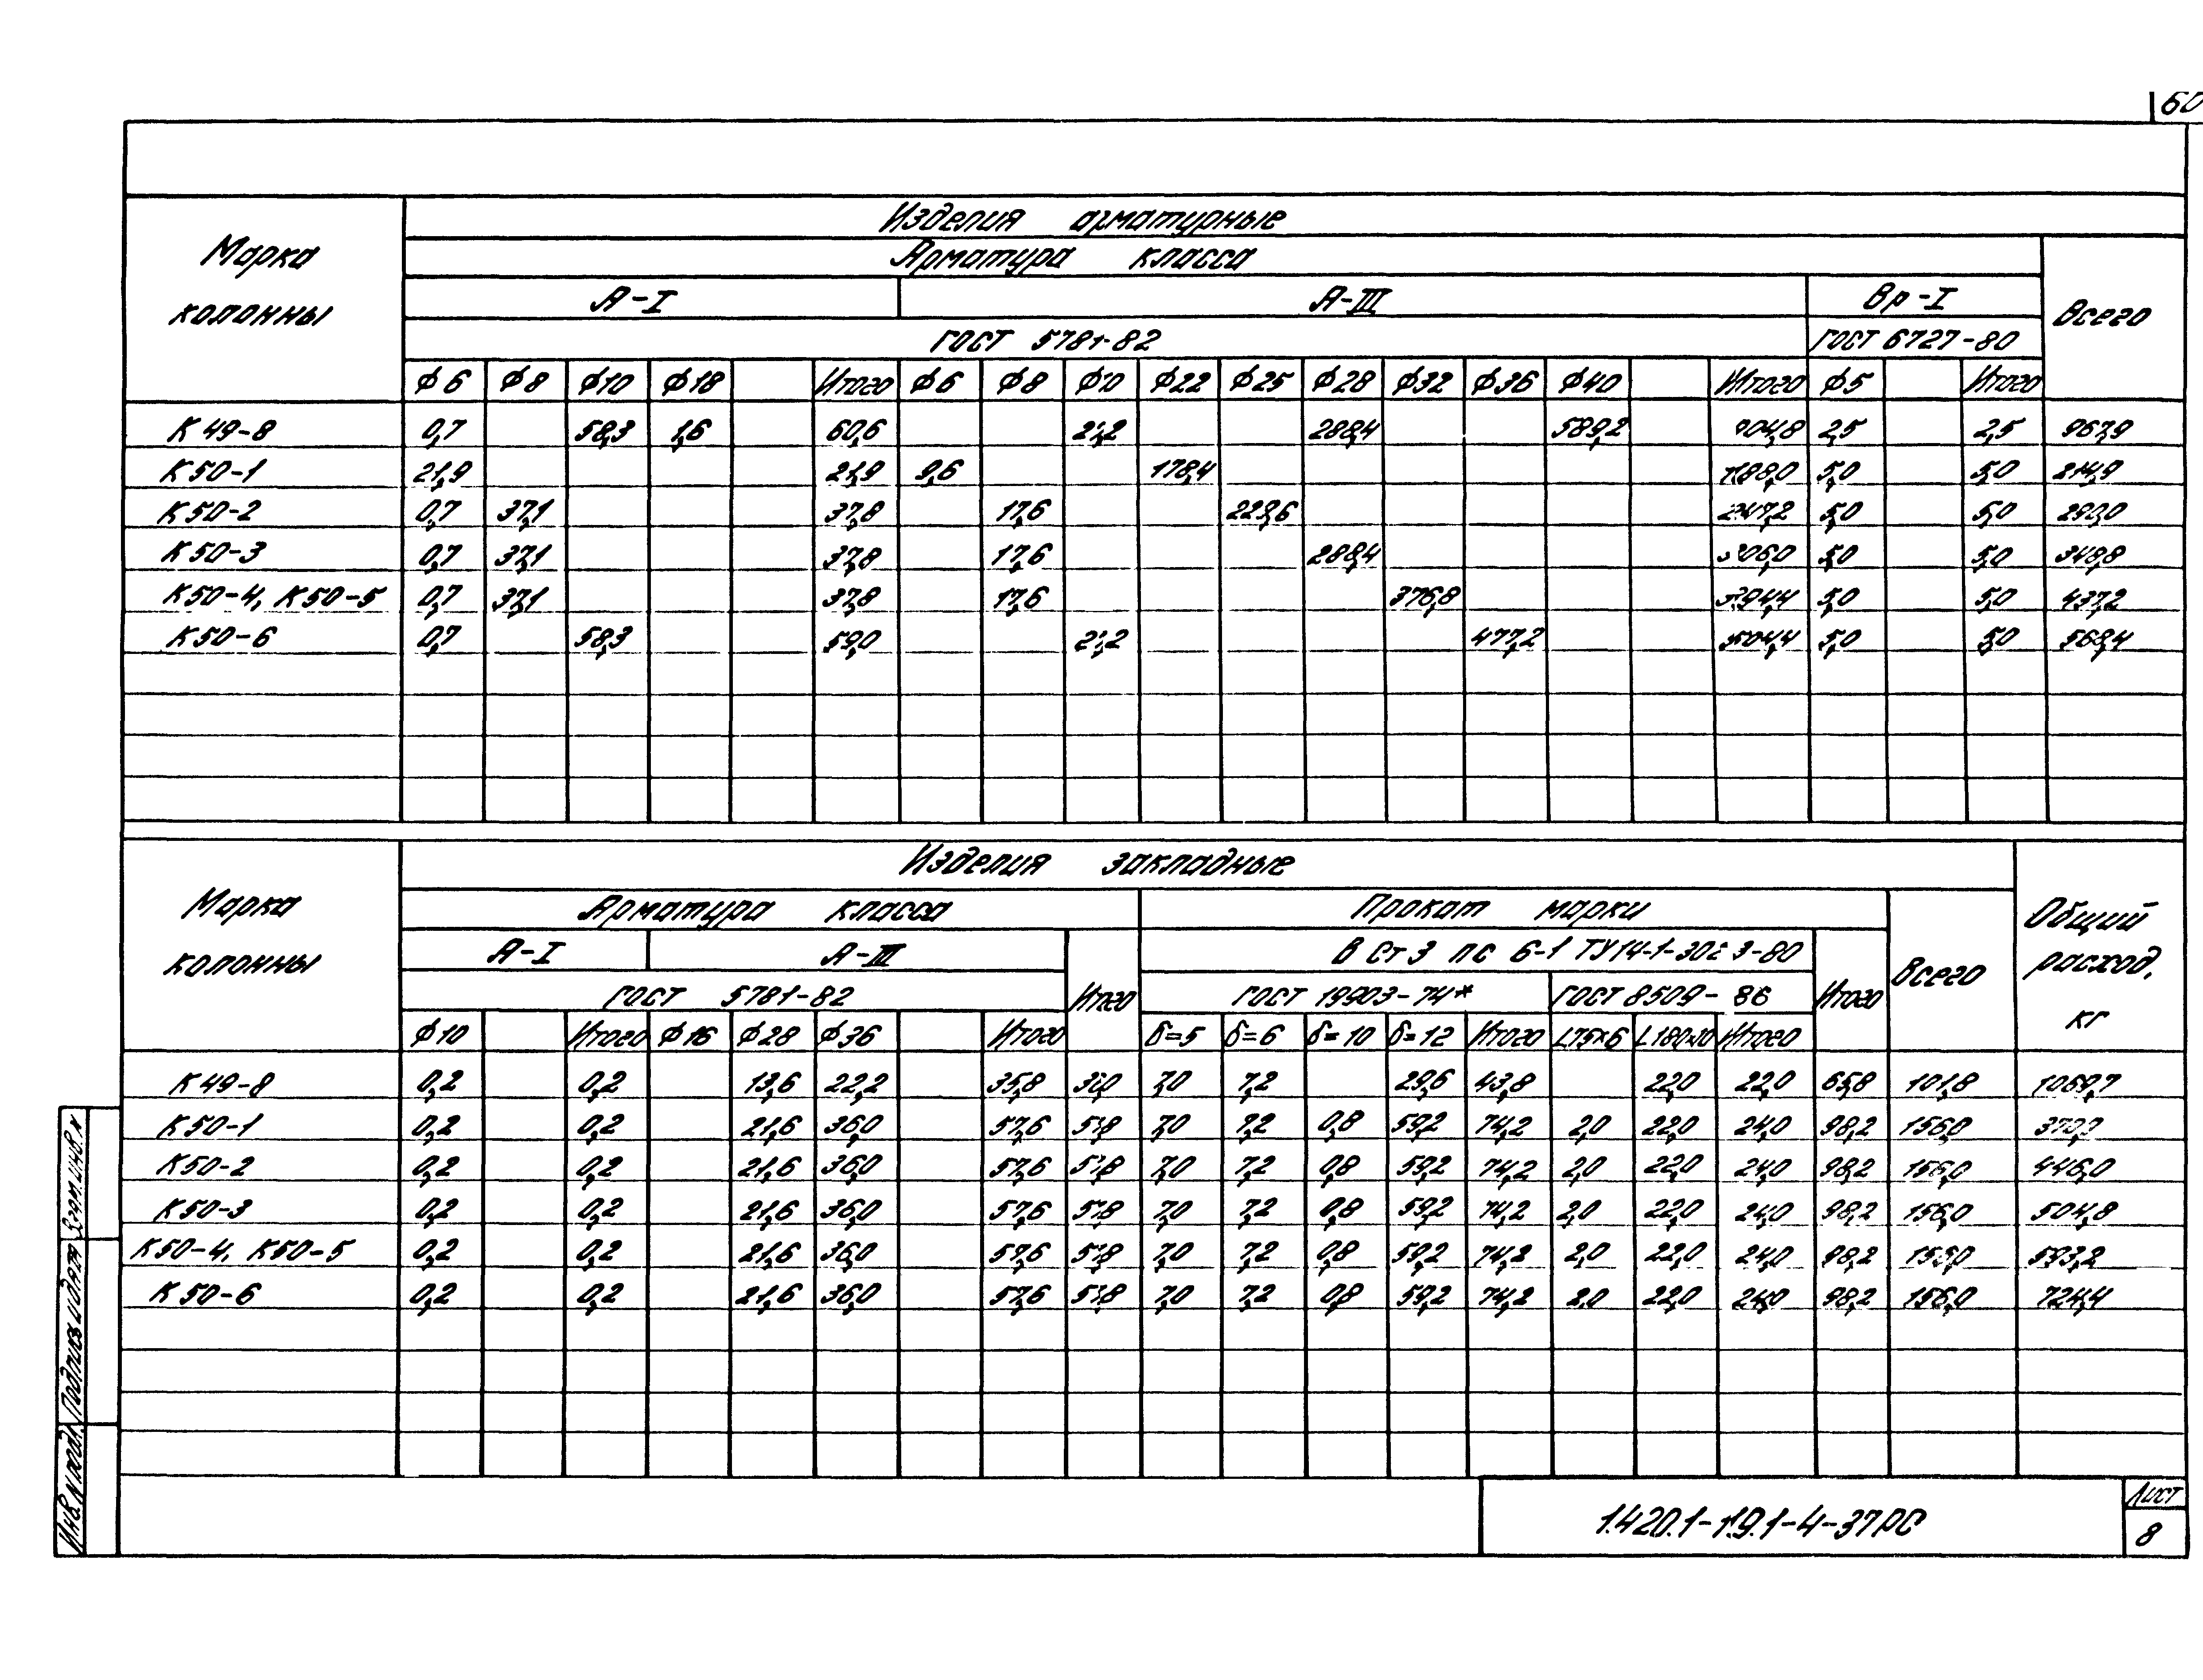 60
Изделия арматурные
Марка колонны
Арматура класса
Всего
А-I А-III Вр-I
ГОСТ 5781-82 ГОСТ 6727-80
ф6 ф8 ф10 ф18 Итого ф6 ф8 ф10 ф22 ф25 ф28 ф32 ф36 ф40 Итого ф5 Итого
К49-8 0,7 58,3 1,6 60,6 21,2 288,4 589,2 2,5 2,5 967,9
К50-1 21,9 21,9 9,6 178,4 188,0 5,0 5,0 214,9
К50-2 0,7 37,1 37,8 17,6 229,6 247,2 5,0 5,0 290,0
К50-3 0,7 37,1 37,8 17,6 288,4 306,0 5,0 5,0 348,8
К50-4, К50-5 0,7 37,1 37,8 17,6 376,8 394,4 5,0 5,0 437,2
К50-6 0,7 58,3 59,0 21,2 477,2 504,4 5,0 5,0 568,4
Изделия закладные
Марка колонны
Арматура класса Прокат марки
Общий расход, кг
А-I А-III Итого В Ст 3 пс 6-1 ТУ14-1-3023-80 Итого Всего
ГОСТ 5781-82 ГОСТ 19903-74* ГОСТ 8509-86
ф10 Итого ф16 ф28 ф36 Итого δ=5 δ=6 δ=10 δ=12 Итого L75×6 L180×10 Итого
К49-8 0,2 0,2 13,6 22,2 35,8 36,0 7,0 7,2 29,6 43,8 22,0 22,0 65,8 101,8 1069,7
К50-1 0,2 0,2 21,6 36,0 57,6 57,8 7,0 7,2 0,8 59,2 74,2 2,0 22,0 24,0 98,2 156,0
К50-2 0,2 0,2 21,6 36,0 57,6 57,8 7,0 7,2 0,8 59,2 74,2 2,0 22,0 24,0 98,2 156,0 446,0
К50-3 0,2 0,2 21,6 36,0 57,6 57,8 7,0 7,2 0,8 59,2 74,2 2,0 22,0 24,0 98,2 156,0 504,8
К50-4, К50-5 0,2 0,2 21,6 36,0 57,6 57,8 7,0 7,2 0,8 59,2 74,2 2,0 22,0 24,0 98,2 156,0 593,2
К50-6 0,2 0,2 21,6 36,0 57,6 57,8 7,0 7,2 0,8 59,2 74,2 2,0 22,0 24,0 98,2 156,0 724,4
Инв. N подл. Подпись и дата Взам. инв. N
1.420.1-19.1-4-37РС
Лист
8